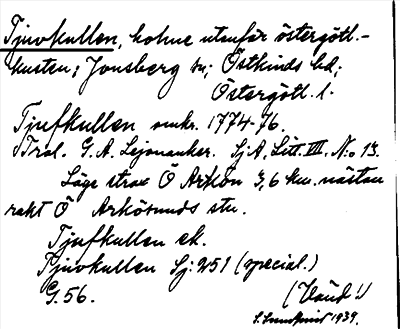 Tjuvkullen, holme utanför östergötl.-
kusten; Jonsberg sn; Östkinds hd;
Östergötl. l.
Tjufkullen omkr. 1774-76.
Tral. G. A. Lejonanker. Sj A, Litt. VII. No 13.
Läge strax Ö Arkön 3,6 km. nästan
rakt Ö Arkösunds stn.
Tjufkullen ek.
Tjuvkullen Sj: 251 (special.)
G. 56. (Vänd!)
1939.